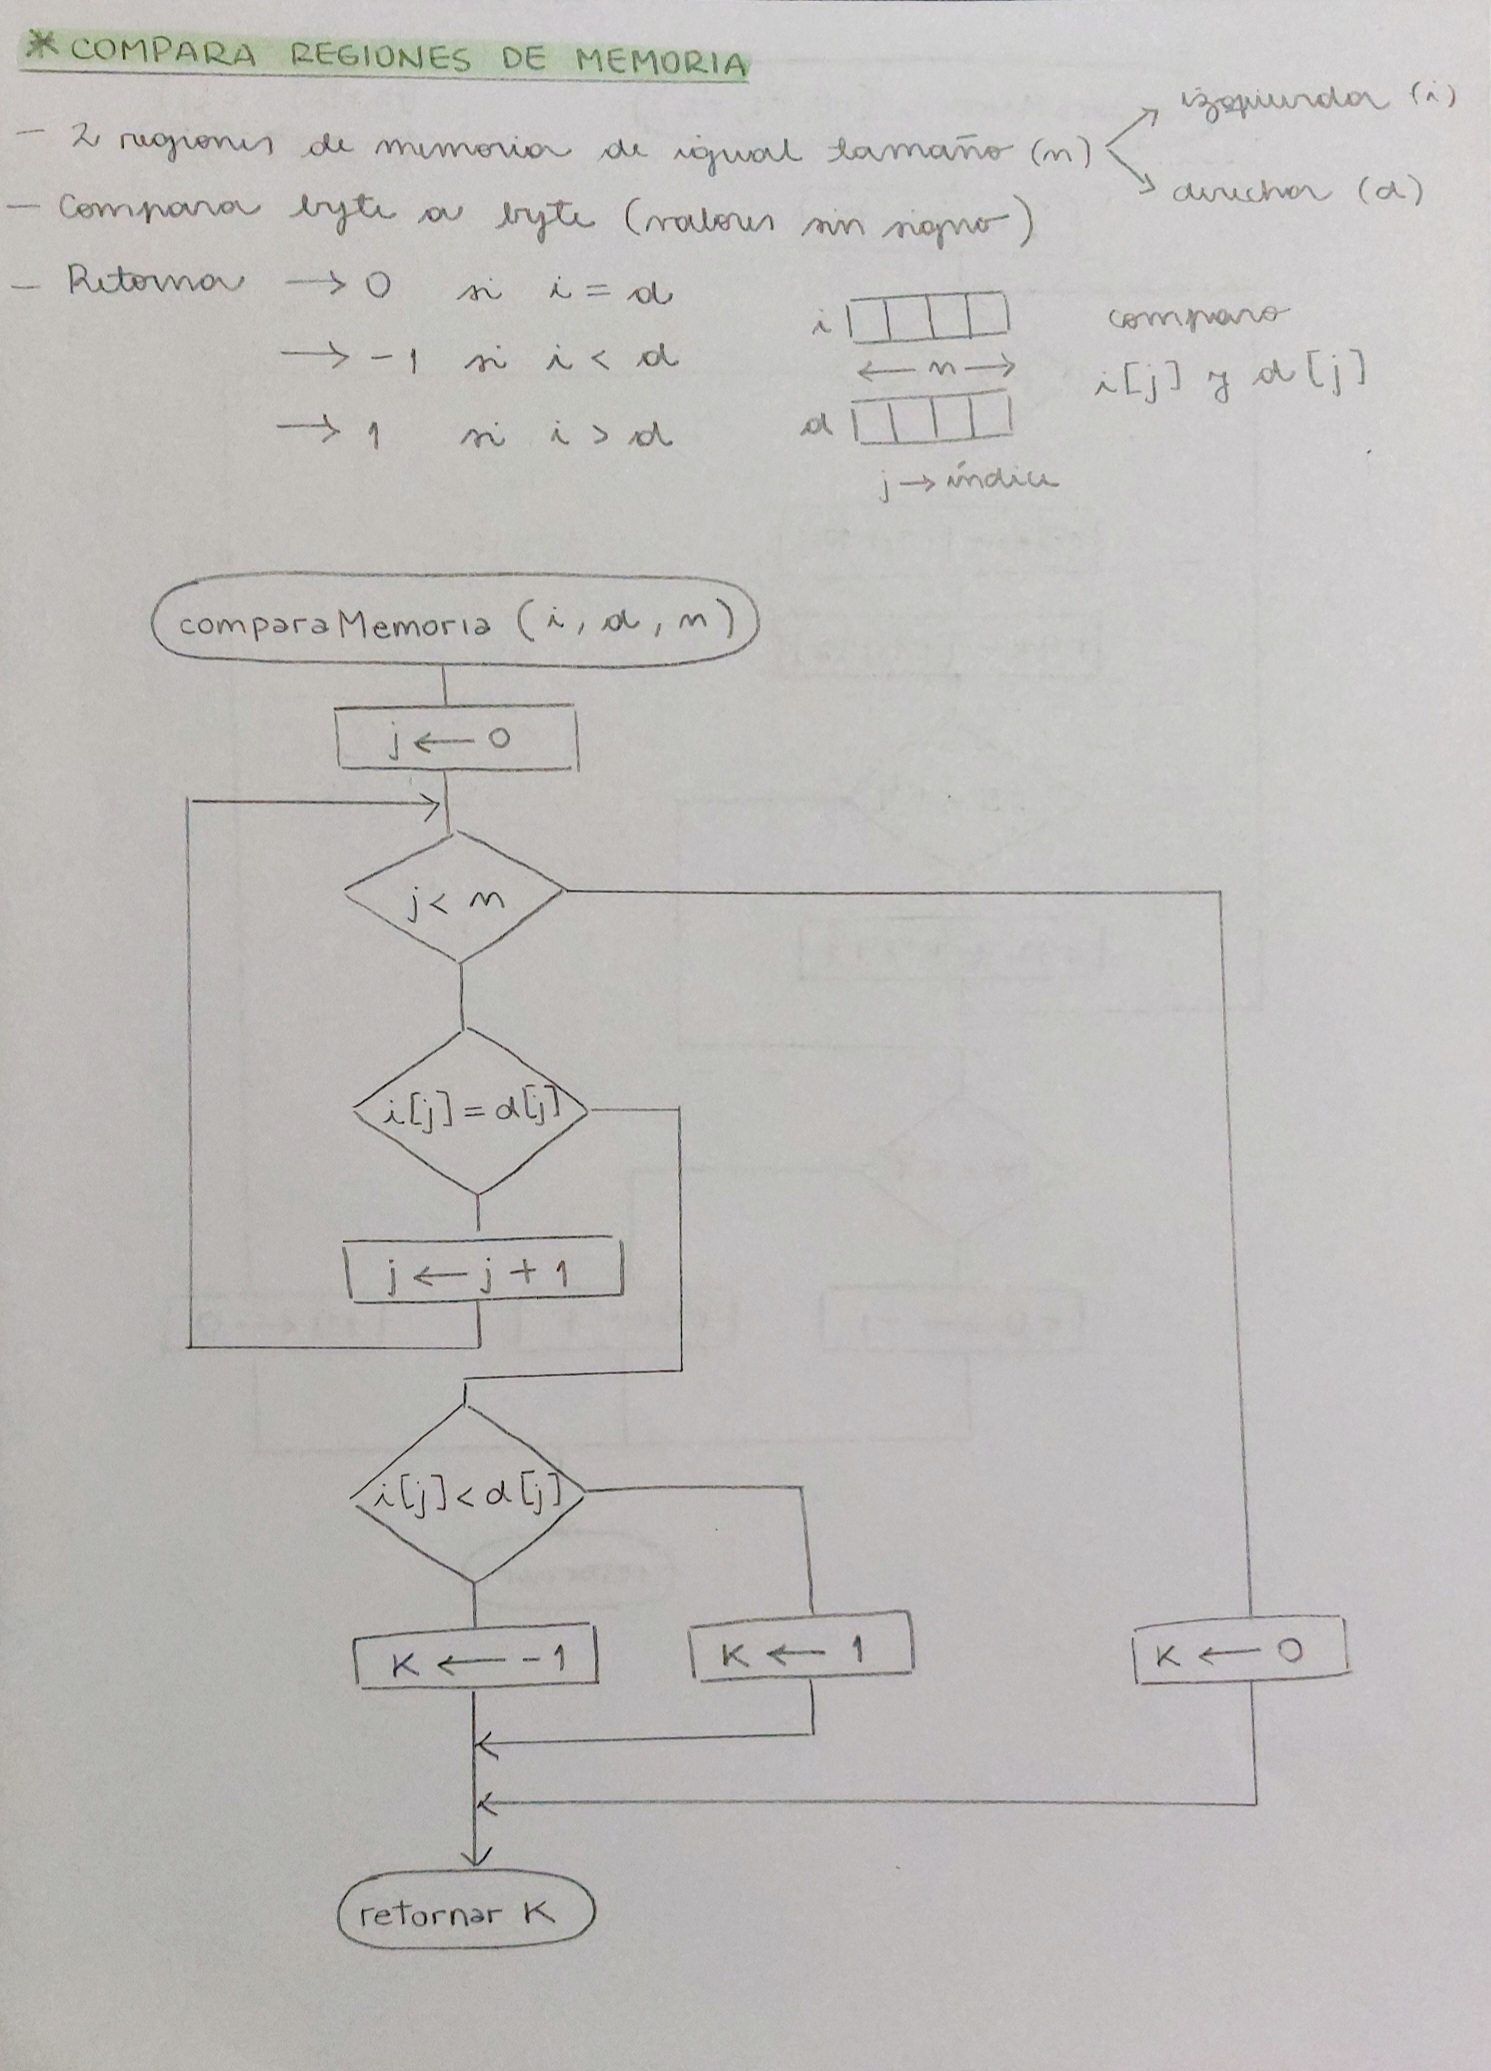 * COMPARA REGIONES DE MEMORIA
- 2 regiones de memoria de igual tamaño (n)
izquierda (i)
derecha (d)
- Compara byte a byte (valores sin signo)
- Retorna → 0 si i = d
→ -1 si i < d
→ 1 si i > d
i
← n →
d
j → índice
comparo
i[j] y d[j]
comparaMemoria (i, d, n)
j ← 0
j < n
i[j] = d[j]
j ← j + 1
i[j] < d[j]
K ← -1
K ← 1
K ← 0
retornar K